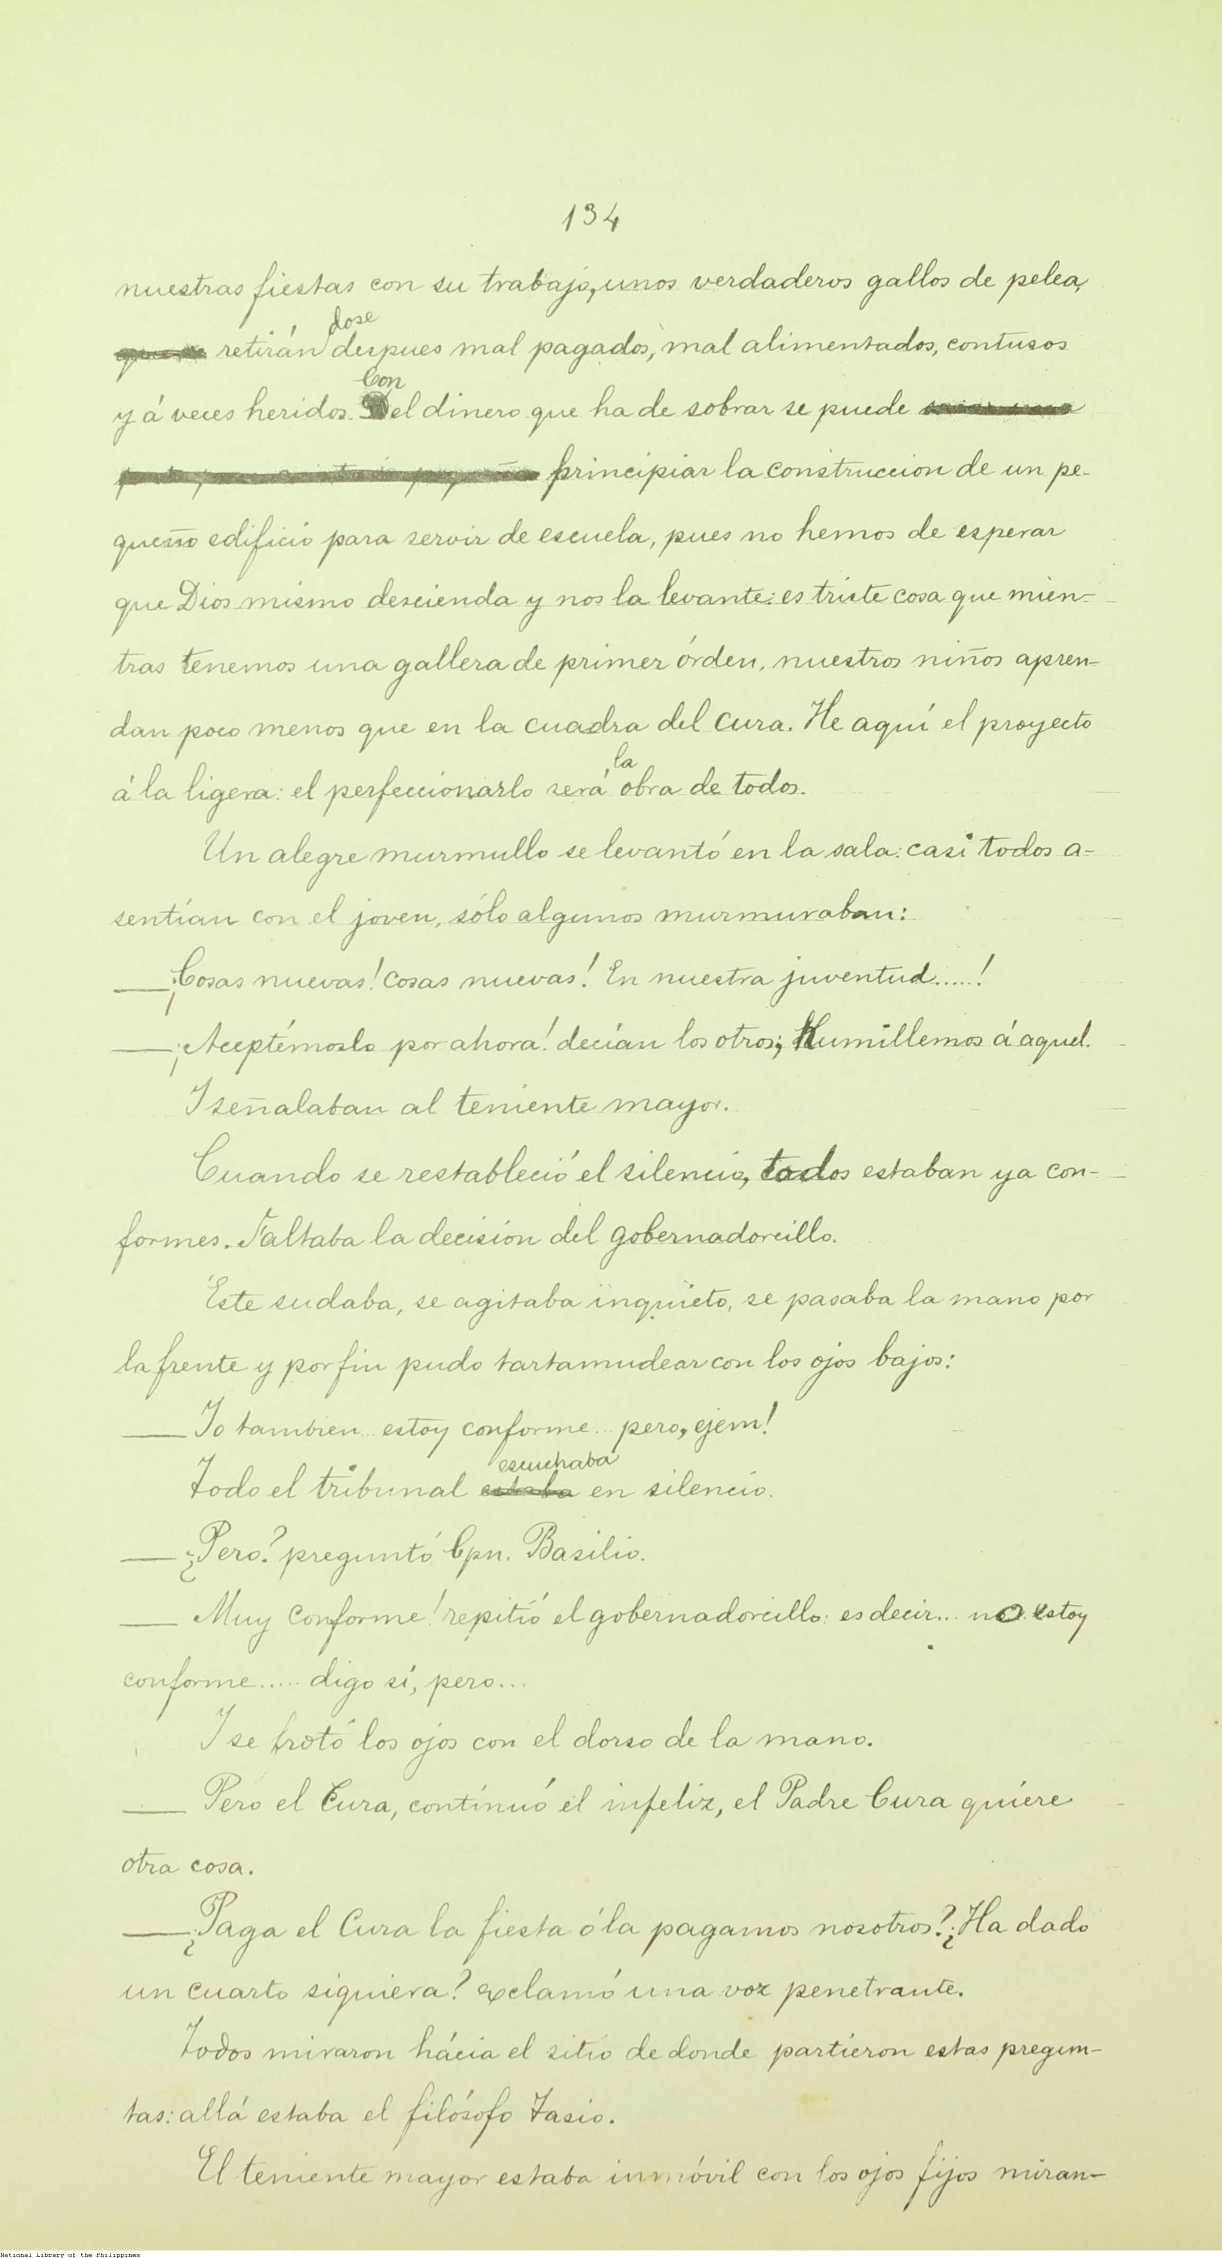 134
nuestras fiestas con su trabajo, unos verdaderos gallos de pelea,
que se retirándose despues mal pagados, mal alimentados, contusos
y á veces heridos. Con el dinero que ha de sobrar se puede
principiar la construccion de un pe-
queño edificio para servir de escuela, pues no hemos de esperar
que Dios mismo descienda y nos la levante: es triste cosa que mien-
tras tenemos una gallera de primer órden, nuestros niños apren-
dan poco menos que en la cuadra del cura. He aquí el proyecto
á la ligera: el perfeccionarlo será la obra de todos.
Un alegre murmullo se levantó en la sala: casi todos a-
sentían con el joven, sólo algunos murmuraban:
—¡Cosas nuevas! cosas nuevas! En nuestra juventud.....!
—¡Aceptémoslo por ahora! decían los otros; humillemos á aquel.
I señalaban al teniente mayor.
Cuando se restableció el silencio, todos estaban ya con-
formes. Faltaba la decisión del gobernadorcillo.
Éste sudaba, se agitaba inquieto, se pasaba la mano por
la frente y por fin pudo tartamudear con los ojos bajos:
—Io tambien estoy conforme... pero, ejem!
Todo el tribunal estaba escuchaba en silencio.
—¿Pero? preguntó Cpn. Basilio.
—Muy conforme! repitió el gobernadorcillo: es decir... no estoy
conforme..... digo sí, pero...
I se frotó los ojos con el dorso de la mano.
—Pero el Cura, continuó el infeliz, el Padre Cura quiere
otra cosa.
—¿Paga el Cura la fiesta ó la pagamos nosotros? ¿Ha dado
un cuarto siquiera? exclamó una voz penetrante.
Todos miraron hácia el sitio de donde partieron estas pregun-
tas: allá estaba el filósofo Tasio.
El teniente mayor estaba inmóvil con los ojos fijos miran-
National Library of the Philippines